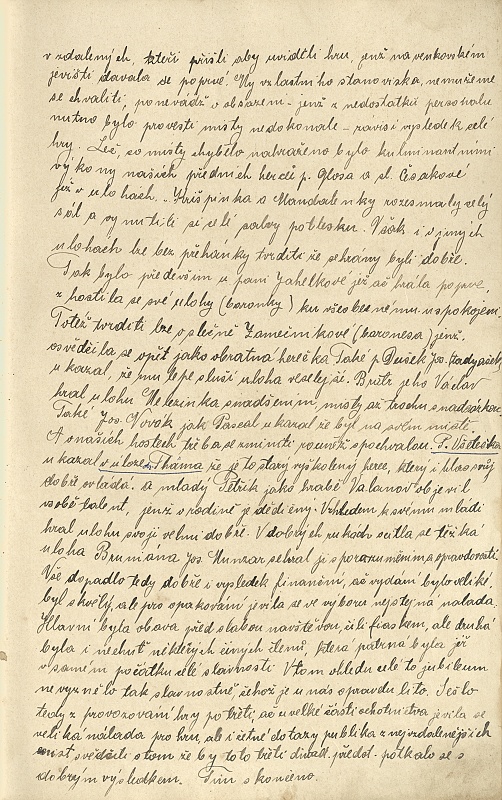 vzdálených, kteří přišli aby uviděli hru, jenž na venkovském
jevišti dávala se poprvé. My z vlastního stanoviska, nemůžeme
se chváliti, poněvadž v obsazení - jenž z nedostatku personálu
nutno bylo provesti místy nedokonale - závisí výsledek celé
hry. Leč, co místy chybělo nahraženo bylo kulminantními
výkony našich předních herců p. Glosa a sl. Čsakové
jež v úlohách „Krišpínka a Mandalenky rozesmály celý
sál a vynutili si celé salvy potlesku. Však i v jiných
úlohách lze bez přeháňky tvrditi že sehrány byli dobře.
Tak bylo především u paní Jahelkové jež ač hrála poprve
zhostila se své úlohy (baronky) ku všeobecnému uspokojení
Totéž tvrditi lze o slečně Zamečníkové (baronesa) jenž
osvědčila se opět jako obratná herečka Také p. Dušek Jos.
ukázal, že mu lépe sluší úloha veselejší. Bratr jeho Václav
hrál úlohu Melezínka s nadšením, místy až trochu s nadsázkou
Také Jos. Novák jak Pascal ukázal že byl na svém místě.
A o našich hostech třeba se zmíniti rovněž s pochvalou. P. Všetečka
ukázal v úloze Tháma že je to starý vyškolený herec, který i hlas svůj
dobře ovládá. a mladý Petřík jako hrabě Valanov objevil
v sobě talent, jenž v rodině je dědičný. Vzhledem k svému mládí
hrál úlohu svoji velmi dobře. V dobrých rukách octla se těžká
úloha Bruniána Jos. Munzar sehrál ji s porozuměním a opravdovostí.
Vše dopadlo tedy dobře i výsledek finanční, ač vydání bylo veliké
byl skvělý, ale pro opakování jevila se ve výboru nejstejná nálada
Hlavní byla obava před slabou návštěvou, čili fiaskem, ale druhá
byla i nechuť některých činných členů, která patrná byla již
v samém počátku celé slavnosti V tom ohledu celé to jubileum
nevyznělo tak slavnostně, čehož je u nás opravdu líto. Sešlo
tedy z provozování hry po třetí, ač u velké části ochotnictva jevila se
veliká nálada pro hru, ale i četné dotazy publika z nejvzdálenějších
míst svědčili o tom že by toto třetí divad. předst. potkalo se s
dobrým výsledkem. Tím skončeno.